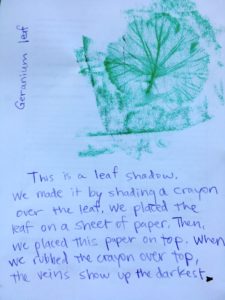 Geranium leaf
This is a leaf shadow.
We made it by shading a crayon
over the leaf. We placed the
leaf on a sheet of paper. Then,
we placed this paper on top. When
we rubbed the crayon over top,
the veins show up the darkest.